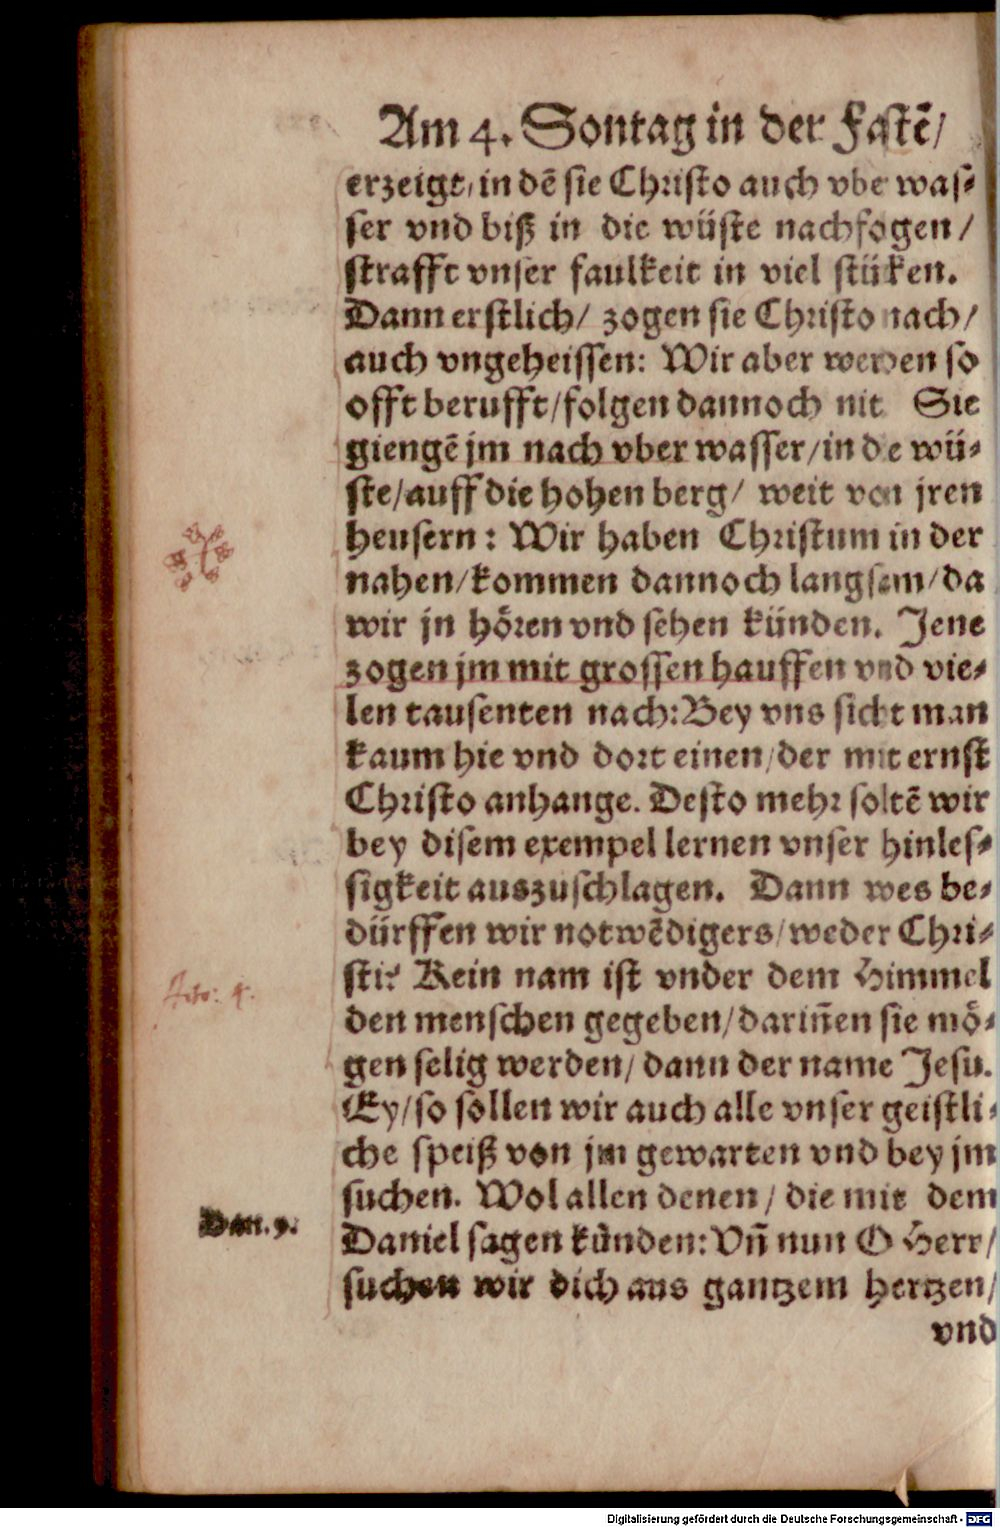 Am 4. Sontag in der Fastẽ/
erzeigt, in dẽ sie Christo auch vbe was-
ser vnd biß in die wüste nachfogen /
strafft vnser faulkeit in viel stüken.
Dann erstlich/ zogen sie Christo nach/
auch vngeheissen: Wir aber werden so
offt berufft/folgen dannoch nit Sie
giengẽ jm nach vber wasser/in die wü-
ste/auff die hohen berg/ weit von jren
heusern: Wir haben Christum in der
nahen/kommen dannoch langsam/da
wir jn hören vnd sehen künden. Jene
zogen jm mit grossen hauffen vnd vie-
len tausenten nach:Bey vns sicht man
kaum hie vnd dort einen/der mit ernst
Christo anhange. Desto mehr soltẽ wir
bey disem exempel lernen vnser hinles-
sigkeit auszuschlagen. Dann wes be-
dürffen wir notwẽdigers/weder Chri-
sti? Kein nam ist vnder dem Himmel
den menschen gegeben/dariñen sie mö-
gen selig werden/ dann der name Jesu.
Ey/so sollen wir auch alle vnser geistli-
che speiß von jm gewarten vnd bey jm
suchen. Wol allen denen/ die mit dem
Daniel sagen künden:Vñ nun O Herr/
suchen wir dich aus gantzem hertzen/
vnd
Acto: 4.
Dan. 9.
Digitalisierung gefördert durch die Deutsche Forschungsgemeinschaft - DFG